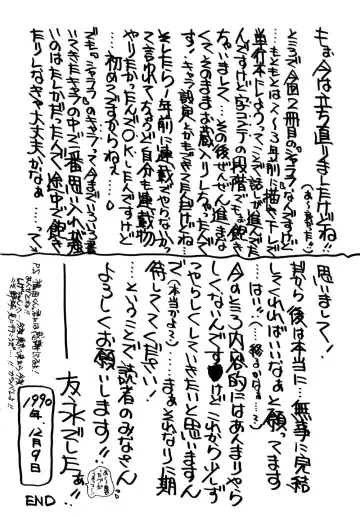 もぉ今は立ち直りましたけどね!!
とこうで今回2冊目の『キャラ』なんですけど
もともとは2〜3年前に描き下しで
単行本にしようってことで話しが進んでた
んですけど字コンテの段階でちょい飽き
ちゃいまして…その後ぜんぜん進まな
くてそのままお蔵入りしちゃったんで
す…キャラ設定とかもできてたんだけど…
そしたら1年前に連載でやらないかっ
て言われてちょうど自分も連載物
やりたかったんでOKしたんですけど
…初めてですからねぇ…。
でも『シャララ』のキャラって今までいろいろ書
いてきたキャラの中で一番気に入れが強
いのはたしかだったんで途中で飽き
たりしなきゃ大丈夫かなぁ……って
思いまして!
其から後は本当に…無事に完結
してくれればいいなぁと願ってます
…はい!!
今のところ内容的にはあんまりやら
しくないんですけどこれから少しず
つやらしくしていきたいと思いますん
で(本当かよ?)……まぁそれなりに期
待しててください!
…ということで読者のみなさん
よろしくお願いします!!
――友永でしたぁ!!
1990年、12月9日
END